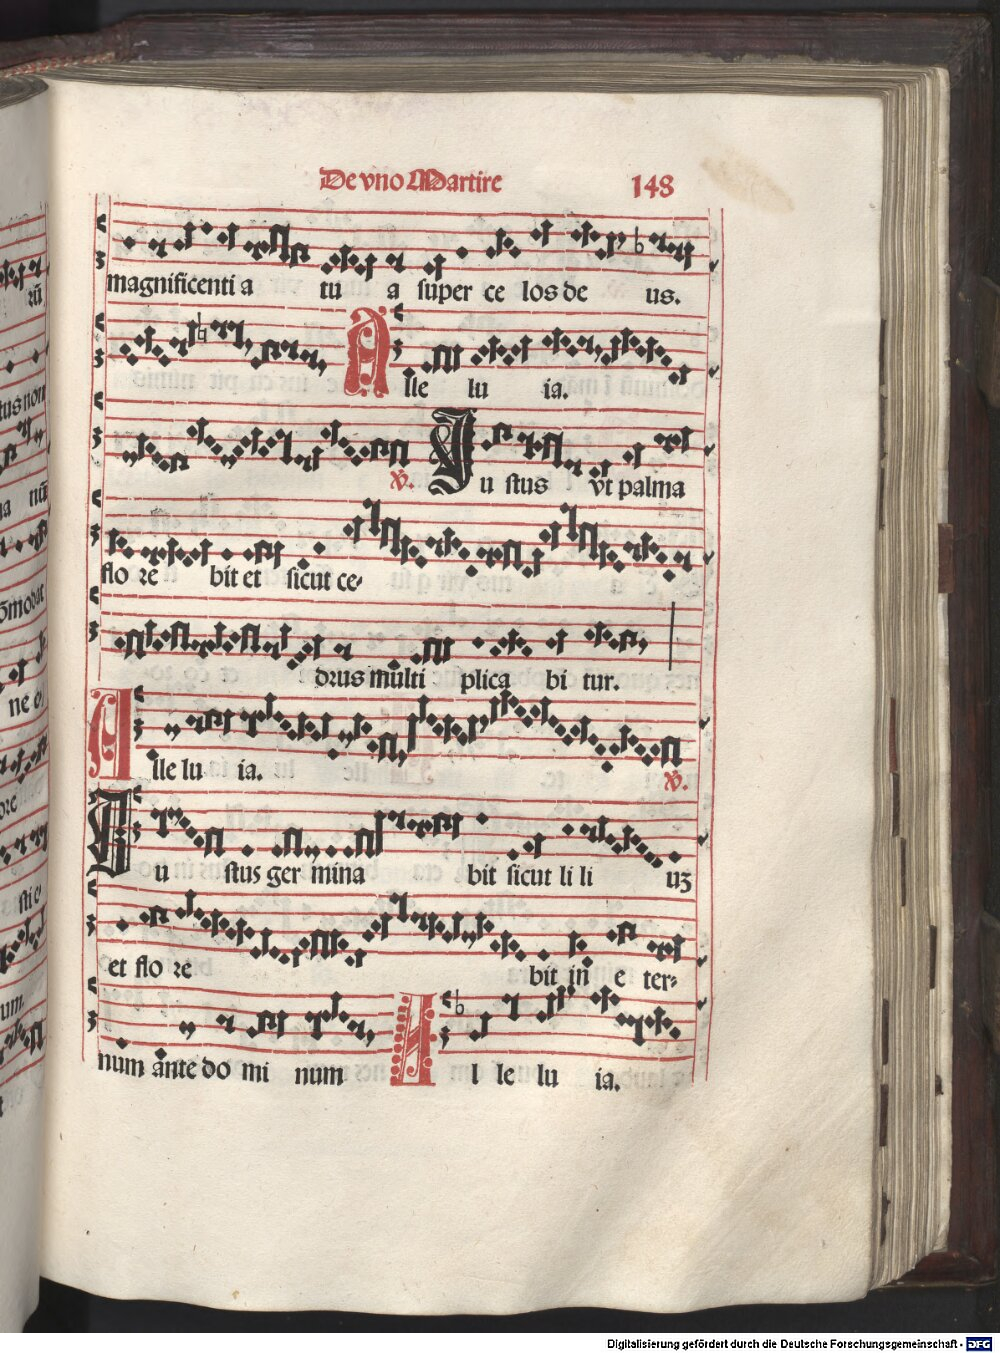 De vno Martire 148
magnificenti a tu a super ce los de us.
A lle lu ia.
℣. Ju stus vt palma
flo re bit et sicut ce-
drus multi plica bi tur.
A lle lu ia. ℣.
Ju stus ger mina bit sicut li li uꝫ
et flo re bit in e ter-
num ante do mi num A l le lu ia.
Digitalisierung gefördert durch die Deutsche Forschungsgemeinschaft - DFG